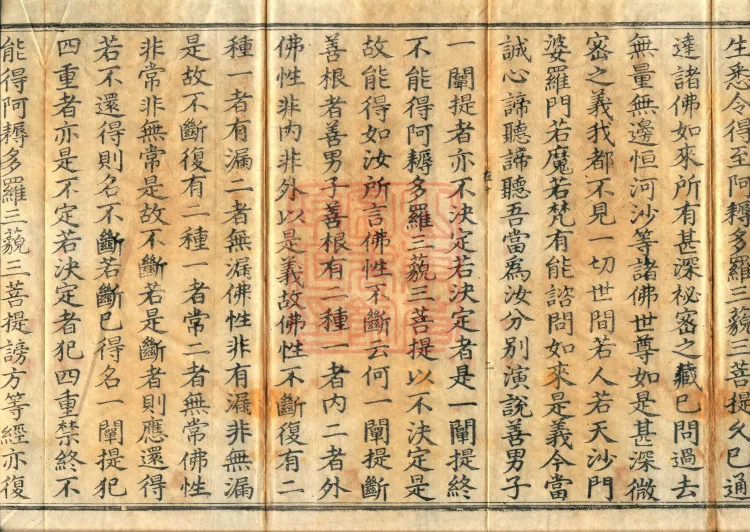 生悉令得至阿耨多羅三藐三菩提久已通
達諸佛如來所有甚深秘密之藏已問過去
無量無邊恒河沙等諸佛世尊如是甚深微
密之義我都不見一切世間若人若天沙門
婆羅門若魔若梵有能諮問如來是義今當
誠心諦聽諦聽吾當為汝分別演說善男子
一闡提者亦不決定若決定者是一闡提終
不能得阿耨多羅三藐三菩提以不決定是
故能得如汝所言佛性不斷云何一闡提斷
善根者善男子善根有二種一者內二者外
佛性非內非外以是義故佛性不斷復有二
種一者有漏二者無漏佛性非有漏非無漏
是故不斷復有二種一者常二者無常佛性
非常非無常是故不斷若是斷者則應還得
若不還得則名不斷若斷已得名一闡提犯
四重者亦是不定若決定者犯四重禁終不
能得阿耨多羅三藐三菩提謗方等經亦復